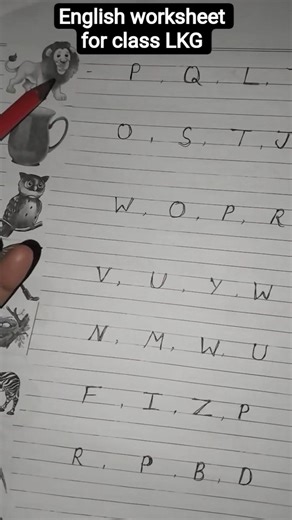 English worksheet
for class LKG
- P, Q, L,
O, S, T, J
W, O, P, R
V, U, Y, W
N, M, W, U
F, I, Z, P
R, P, B, D